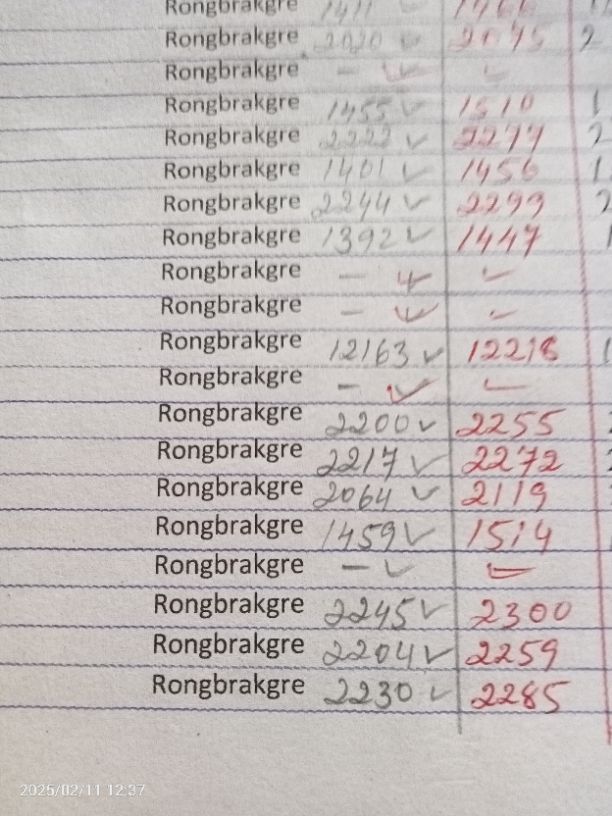 Rongbrakgre 1411 ✓ 1466
Rongbrakgre 2020 ✓ 2075 2
Rongbrakgre - ✓ -
Rongbrakgre 1455 ✓ 1510 1
Rongbrakgre 2222 ✓ 2277 2
Rongbrakgre 1401 ✓ 1456 1
Rongbrakgre 2244 ✓ 2299 2
Rongbrakgre 1392 ✓ 1447 1
Rongbrakgre - ✓ -
Rongbrakgre - ✓ -
Rongbrakgre 12163 ✓ 12218 1
Rongbrakgre - ✓ -
Rongbrakgre 2200 ✓ 2255
Rongbrakgre 2217 ✓ 2272
Rongbrakgre 2064 ✓ 2119
Rongbrakgre 1459 ✓ 1514
Rongbrakgre - ✓ -
Rongbrakgre 2245 ✓ 2300
Rongbrakgre 2204 ✓ 2259
Rongbrakgre 2230 ✓ 2285
2025/02/11 12:37